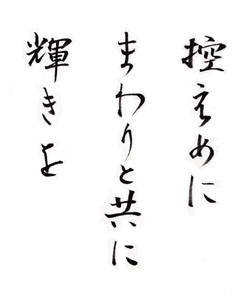 控えめに
まわりと共に
輝きを